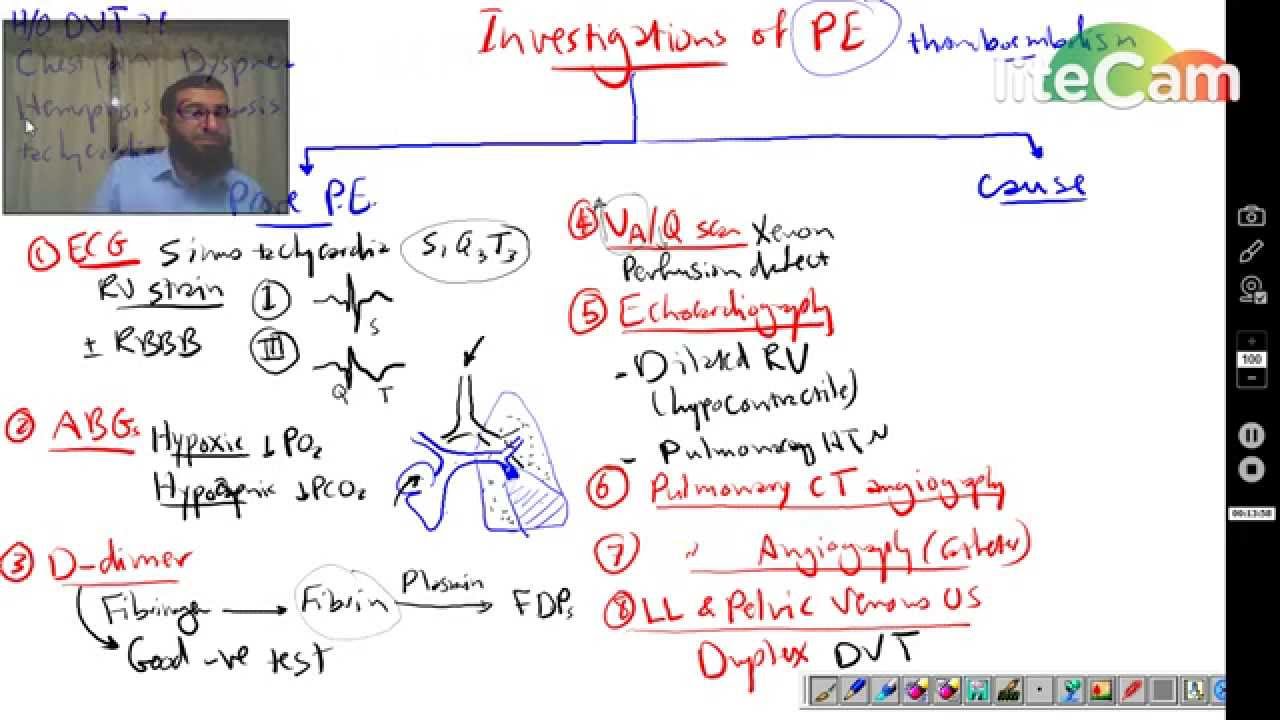 H/O DVT ?!
Investigations of PE thromboembolism
liteCam
Chest pain Dyspnea
Hemoptysis Cyanosis
tachycardia
Prove P.E.
cause
① ECG Sinus tachycardia S₁ Q₃ T₃
RV strain I
S
± RBBB III
Q T
② ABGs Hypoxic ↓PO₂
Hypocapnic ↓PCO₂
③ D-dimer
Fibrinogen → Fibrin Plasmin → FDPs
Good -ve test
④ VA/Q scan Xenon
Perfusion defect
⑤ Echocardiography
- Dilated RV
(hypocontractile)
- Pulmonary HTN
⑥ Pulmonary CT angiography
⑦ " Angiography (Catheter)
⑧ LL & Pelvic Venous US
Duplex DVT
100
00:13:50